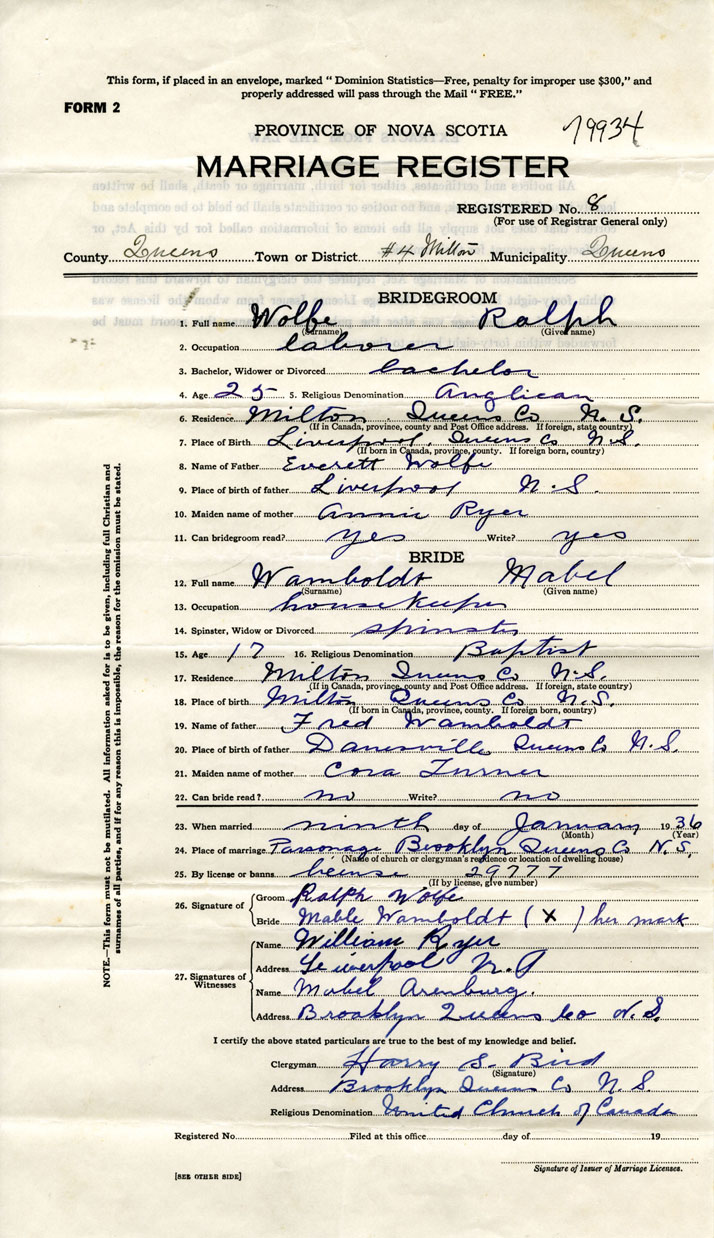 This form, if placed in an envelope, marked “ Dominion Statistics—Free, penalty for improper use $300,” and
properly addressed will pass through the Mail “ FREE.”
FORM 2
PROVINCE OF NOVA SCOTIA 79934
MARRIAGE REGISTER
REGISTERED No. 8
(For use of Registrar General only)
County Queens Town or District #4 Milton Municipality Queens
BRIDEGROOM
1. Full name Wolfe Ralph
(Surname) (Given name)
2. Occupation laborer
3. Bachelor, Widower or Divorced bachelor
4. Age 25 5. Religious Denomination Anglican
6. Residence Milton Queens Co N. S.
(If in Canada, province, county and Post Office address. If foreign, state country)
7. Place of Birth Liverpool, Queens Co N.S.
(If born in Canada, province, county. If foreign born, country)
8. Name of Father Everett Wolfe
9. Place of birth of father Liverpool N.S.
10. Maiden name of mother Annie Ryer
11. Can bridegroom read? yes Write? yes
BRIDE
12. Full name Wamboldt Mabel
(Surname) (Given name)
13. Occupation housekeeper
14. Spinster, Widow or Divorced spinster
15. Age 17 16. Religious Denomination Baptist
17. Residence Milton Queens Co N.S.
(If in Canada, province, county and Post Office address. If foreign, state country)
18. Place of birth Milton Queens Co N.S.
(If born in Canada, province, county. If foreign born, country)
19. Name of father Fred Wamboldt
20. Place of birth of father Danesville Queens Co N.S.
21. Maiden name of mother Cora Turner
22. Can bride read? no Write? no
23. When married ninth day of January 1936
(Month) (Year)
24. Place of marriage Parsonage Brooklyn Queens Co N.S.
(Name of church or clergyman's residence or location of dwelling house)
25. By license or banns license 29777
(If by license, give number)
26. Signature of Groom Ralph Wolfe
Bride Mable Wamboldt (X) her mark
27. Signatures of Witnesses
Name William Ryer
Address Liverpool N.S
Name Mabel Arenburg.
Address Brooklyn Queens Co N.S.
I certify the above stated particulars are true to the best of my knowledge and belief.
Clergyman Harry S. Bird
(Signature)
Address Brooklyn Queens Co N.S.
Religious Denomination United Church of Canada
Registered No. Filed at this office day of 19
Signature of Issuer of Marriage Licenses.
[SEE OTHER SIDE]
NOTE.—This form must not be mutilated. All information asked for is to be given, including full Christian and
surnames of all parties, and if for any reason this is impossible, the reason for the omission must be stated.